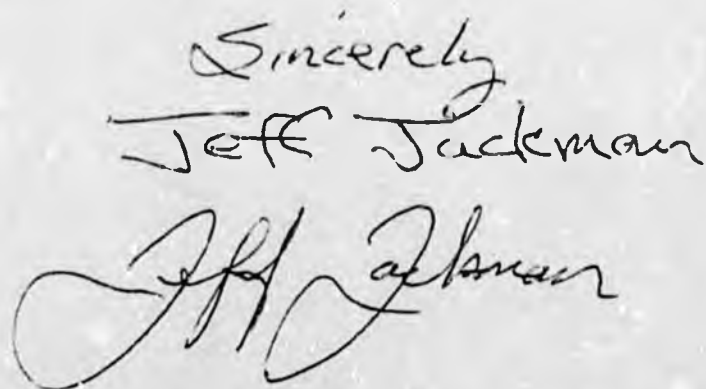 Sincerely
Jeff Jackman
Jeff Jackman